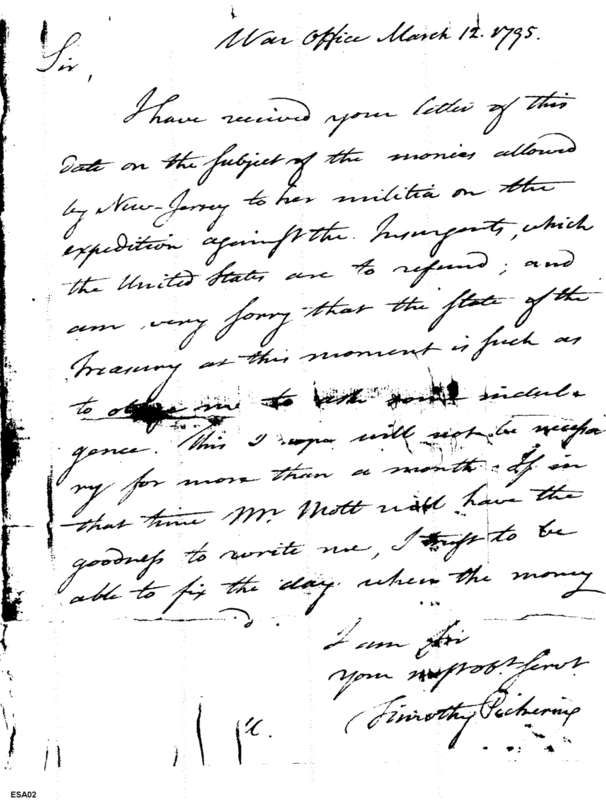 War Office March 12. 1795.
Sir,
I have received your letter of this
date on the subject of the monies allowed
by New-Jersey to her militia on the
expedition against the Insurgents, which
the United States are to refund; and
am very sorry that the state of the
Treasury at this moment is such as
to oblige me to ask some indul-
gence. This I hope will not be necessa
ry for more than a month. If in
that time Mr. Mott will have the
goodness to write me, I trust to be
able to fix the day when the money
I am sir
your most obt. servt.
Timothy Pickering
ESA02